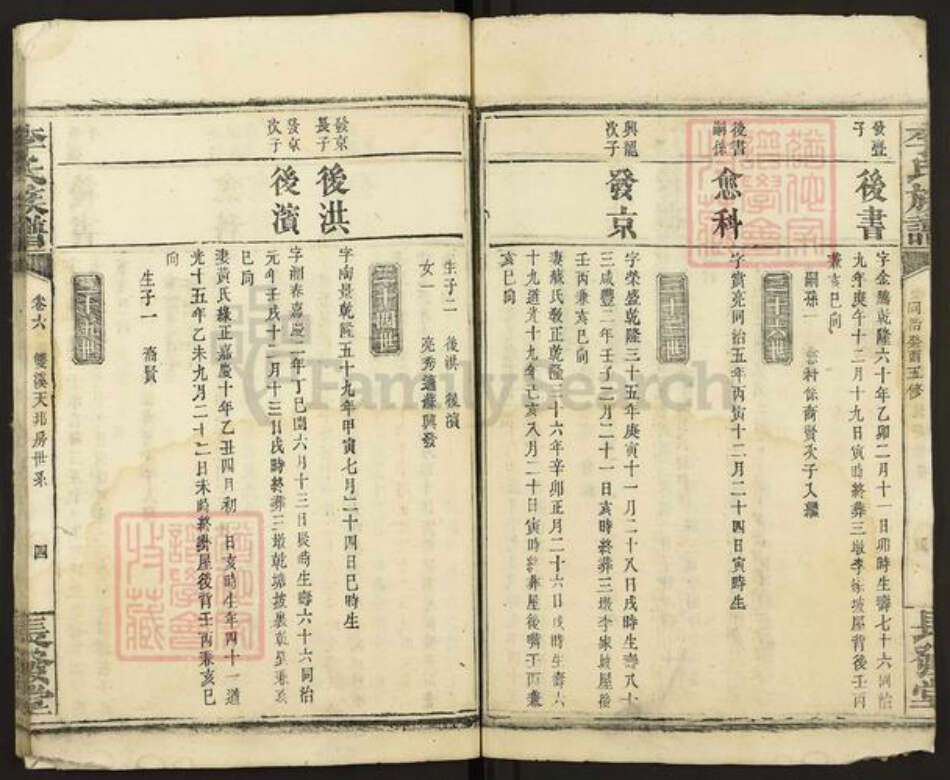 李氏族譜
同治癸酉五修
長發堂
發璧
子
後書
字金騰乾隆六十年乙卯二月十一日卯時生壽七十六同治
九年庚午十二月十九日寅時終葬三墩李家坡屋背後壬丙
兼亥巳向
嗣孫一
三十六世
後書
嗣孫
愈科
字實亮同治五年丙寅十二月二十四日寅時生
三十三世
興龍
次子
發京
字榮盛乾隆三十五年庚寅十一月二十八日戌時生壽八十
三咸豐二年壬子二月二十一日亥時終葬三墩李家坡屋後
壬丙兼亥巳向
妻戴氏敎正乾隆三十六年辛卯正月二十六日戌時生壽六
十九道光十九年己亥八月二十日寅時終葬屋後嘴壬丙兼
亥巳向
生子二 後洪 後濱
女一
三十四世
發京
長子
後洪
字南景乾隆五十九年甲寅七月二十四日巳時生
發京
次子
後濱
字湘春嘉慶二年丁巳閏六月十三日辰時生壽六十六同治
元年壬戌十二月十三日戌時終葬三墩乾塘
巳向
妻黃氏緣正嘉慶十年乙丑四月初 日亥時生年四十一道
光十五年乙未九月二十二日未時終葬屋後背壬丙兼亥巳
向
生子一 裔賢
三十五世
李氏族譜
卷六 雙溪天兆房世系 四
長發堂
FamilySearch